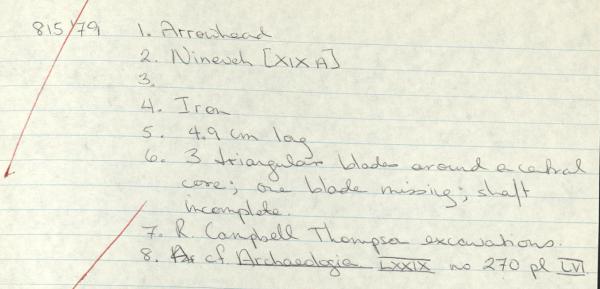 815'79 1. Arrowhead
2. Nineveh [XIX A]
3.
4. Iron
5. 4.9 cm log
6. 3 triangular blades around a central
core; one blade missing; shaft
incomplete.
7. R. Campbell Thompson excavations.
8. cf. Archaeologia LXXIX no 270 pl LVI.